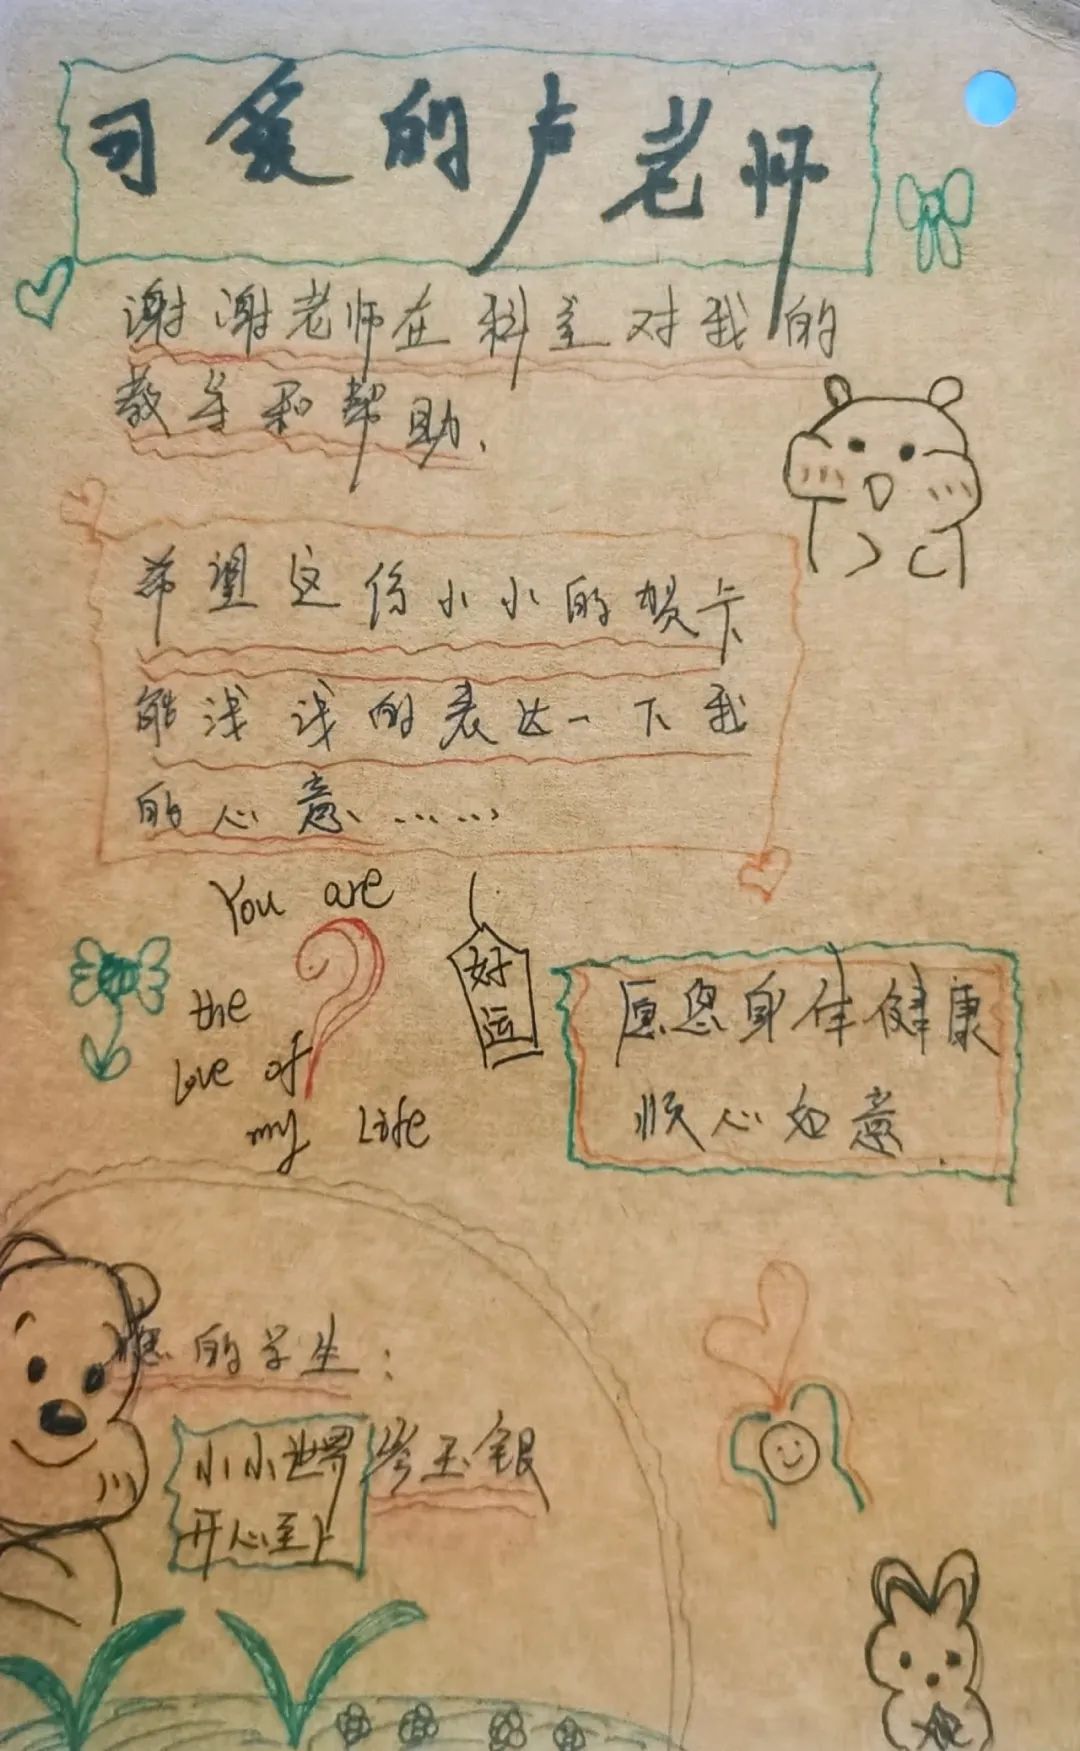 可爱的卢老师
谢谢老师在科室对我的
教导和帮助.
希望这份小小的贺卡
能浅浅的表达一下我
的心意......
You are
the
Love of
my Life
好运
愿您身体健康
顺心如意.
您的学生:
小小世界
开心至上
岑玉银